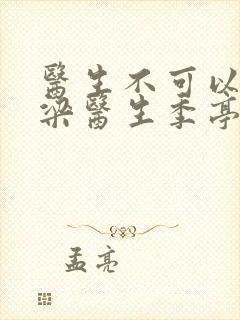 醫生不可以
梁醫生季亭
孟亮